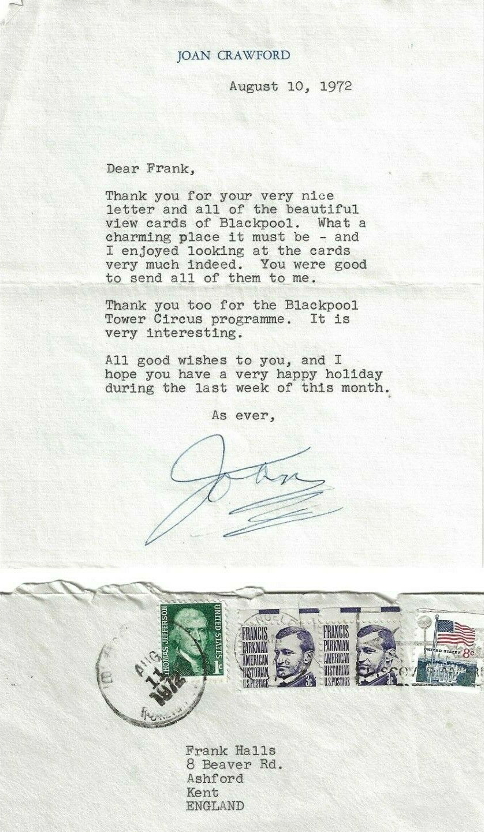 JOAN CRAWFORD
August 10, 1972
Dear Frank,
Thank you for your very nice
letter and all of the beautiful
view cards of Blackpool. What a
charming place it must be - and
I enjoyed looking at the cards
very much indeed. You were good
to send all of them to me.
Thank you too for the Blackpool
Tower Circus programme. It is
very interesting.
All good wishes to you, and I
hope you have a very happy holiday
during the last week of this month.
As ever,
Joan
AUG
11
1972
THOMAS JEFFERSON
UNITED STATES
FRANCIS
PARKMAN
AMERICAN
HISTORIAN
US POSTAGE
FRANCIS
PARKMAN
AMERICAN
HISTORIAN
US POSTAGE
UNITED STATES
8c
Frank Halls
8 Beaver Rd.
Ashford
Kent
ENGLAND